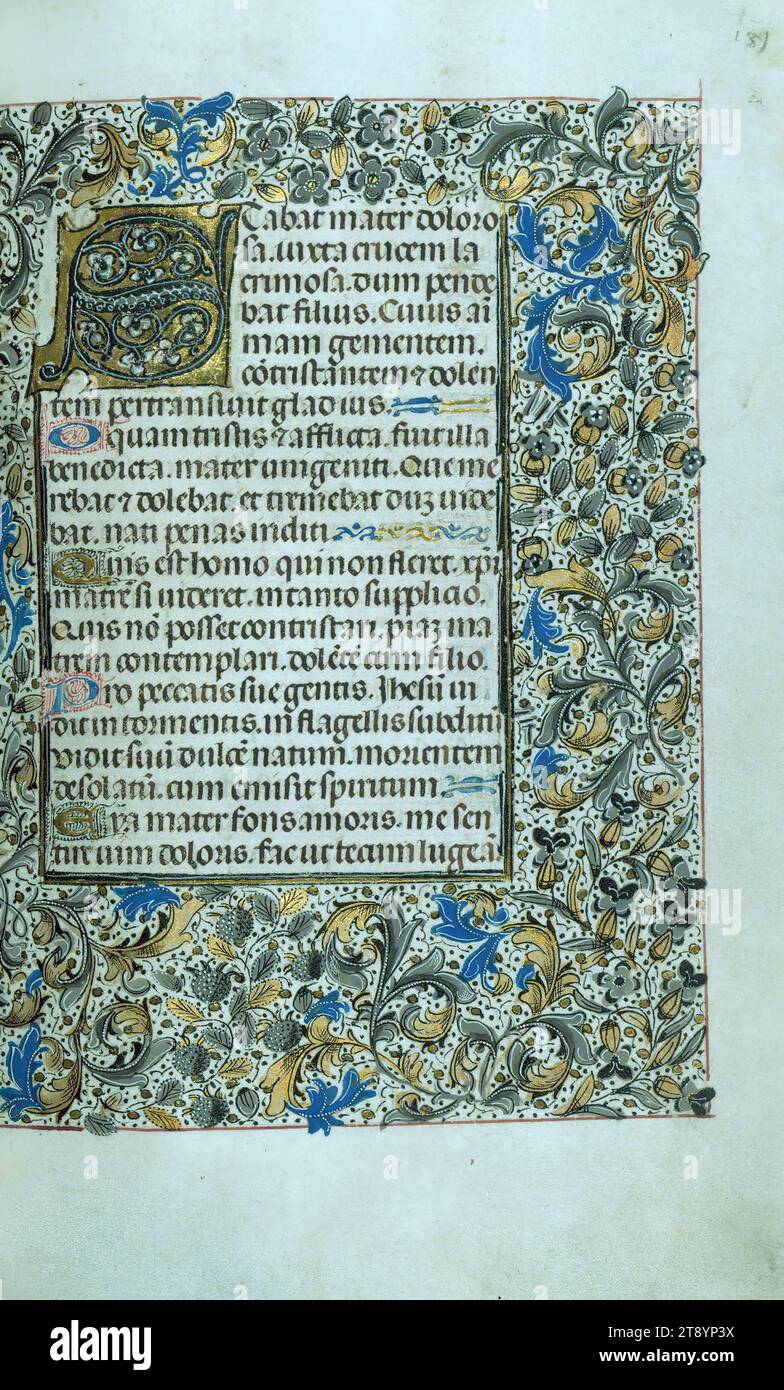 189
Stabat mater doloro
sa. iuxta crucem la
crimosa. dum pende
bat filius. Cuius ai͂
mam gementem.
co͂tristantem ⁊ dolen
tem pertransiuit gladius.
O quam tristis ⁊ afflicta. fuit illa
benedicta. mater unigeniti. Que me
rebat ⁊ dolebat. et tremebat duʒ uide
bat. nati penas incliti
Quis est homo qui non fleret. xp̄i
matre͂ si uideret. in tanto supplicio.
Quis no͂ posset contristari. piaʒ ma
trem contemplari. dole͂te͂ cum filio.
Pro peccatis sue gentis. Jhesu͂ ui
dit in tormentis. in flagellis subditu͂
vidit suu͂ dulce͂ natum. morientem
desolatu͂. cum emisit spiritum
Eya mater fons amoris. me sen
tire uim doloris. fac ut tecum lugea͂.
alamy
alamy
Image ID: 2T8YP3X
www.alamy.com